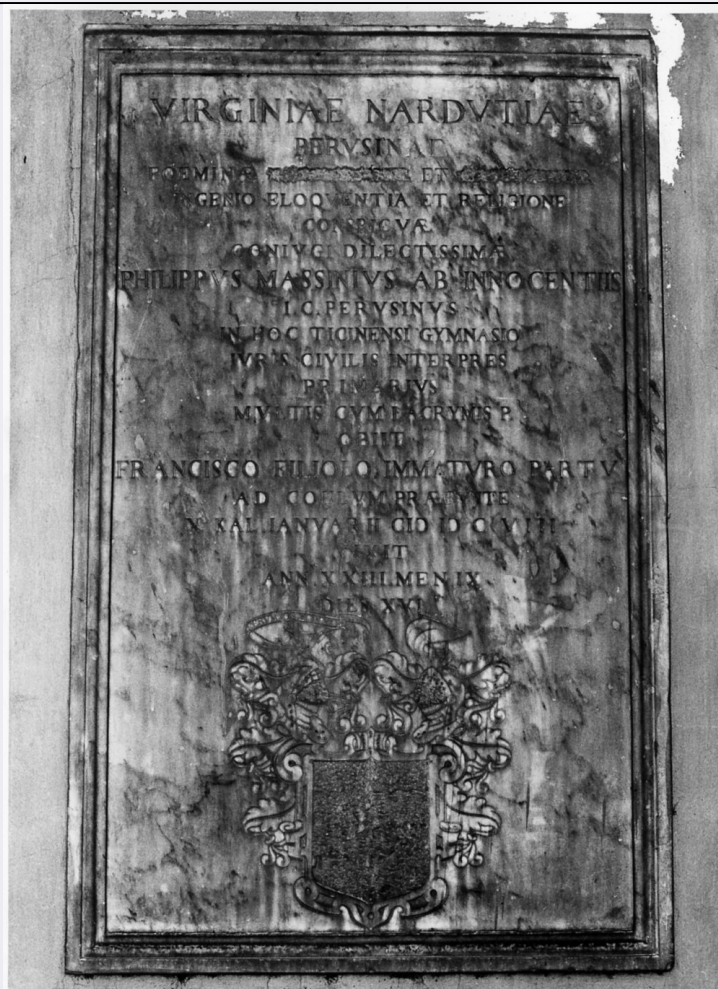 VIRGINIAE NARDVTIAE
PERVSINAE
FOEMINAE ET
INGENIO ELOQVENTIA ET RELIGIONE
CONSPICVÆ
CONIVGI DILECTISSIMÆ
PHILIPPVS MASSINIVS AB INNOCENTIIS
I.C. PERVSINVS
IN HOC TICINENSI GYMNASIO
IVRIS CIVILIS INTERPRES
PRIMARIVS
MVLTIS CVM LACRYMIS P.
OBIIT
FRANCISCO FILIOLO, IMMATVRO PARTV
AD COELVM PRÆEVNTE
KAL. IANVARII
ANN. XXIII. MEN IX
DIES XVI